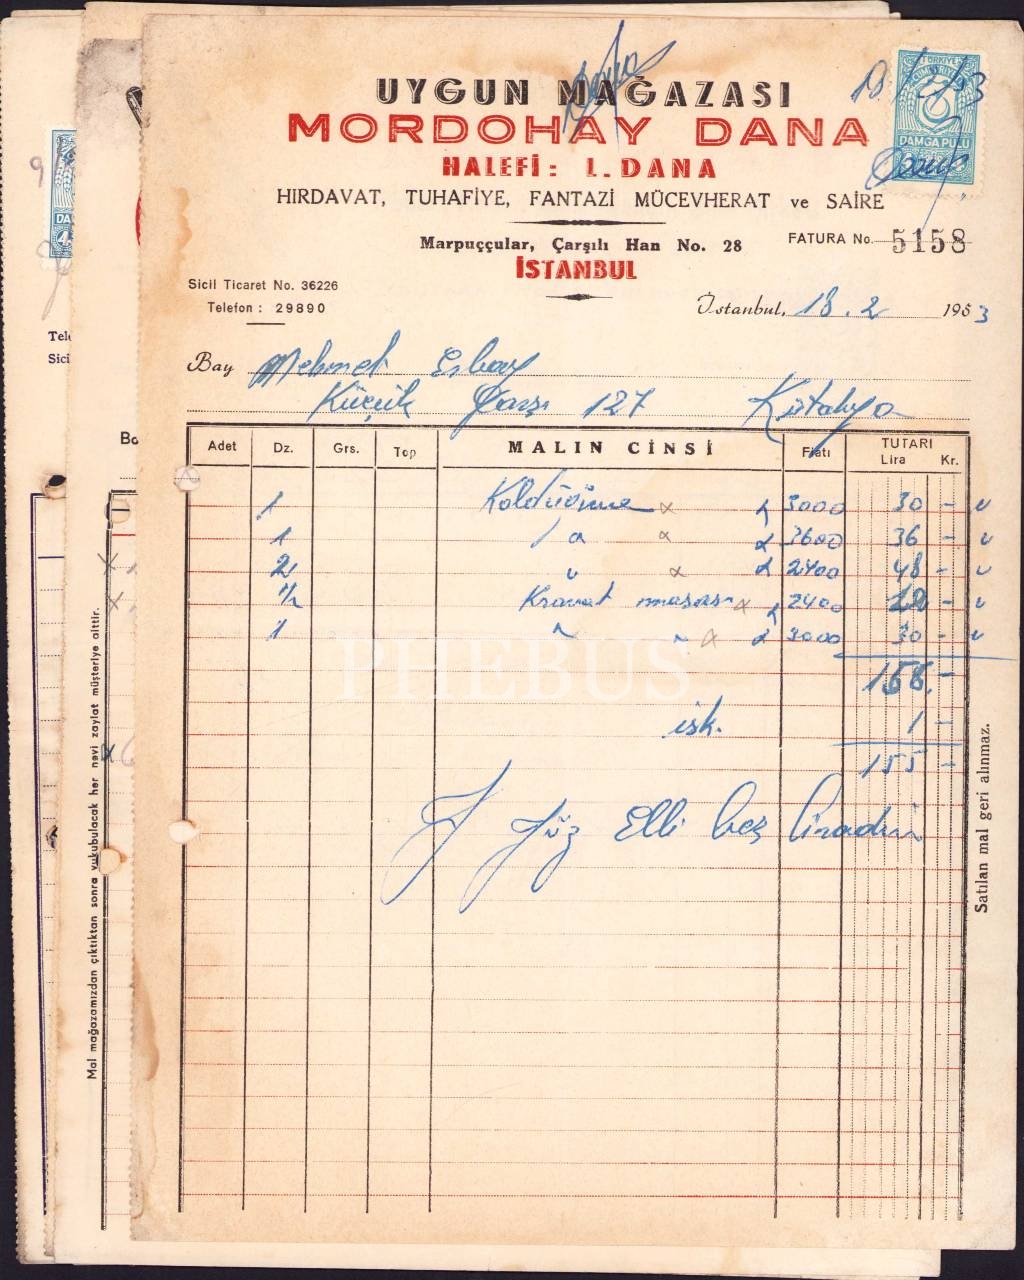 UYGUN MAĞAZASI
MORDOHAY DANA
HALEFİ: L. DANA
HIRDAVAT, TUHAFİYE, FANTAZİ MÜCEVHERAT ve SAİRE
Marpuççular, Çarşılı Han No. 28
İSTANBUL
FATURA No. 5158
TÜRKİYE CUMHURİYETİ
DAMGA PULU
Sicil Ticaret No. 36226
Telefon : 29890
İstanbul, 18.2 1953
Bay Mehmet Erbay
Küçük Çarşı 127 Kütahya
Adet Dz. Grs. Top MALIN CİNSİ Fiatı TUTARI Lira Kr.
1 Koldüğme 3000 30 -
1 3600 36 -
2 " 2400 48 -
1/2 Kravat masası 2400 12 -
1 " " 3000 30 -
156. -
isk. 1 -
155 -
Yüz Elli beş liradır
Satılan mal geri alınmaz.
Mal mağazamızdan çıktıktan sonra vukubulacak her nevi zaylat müşteriye aittir.
PHEBUS